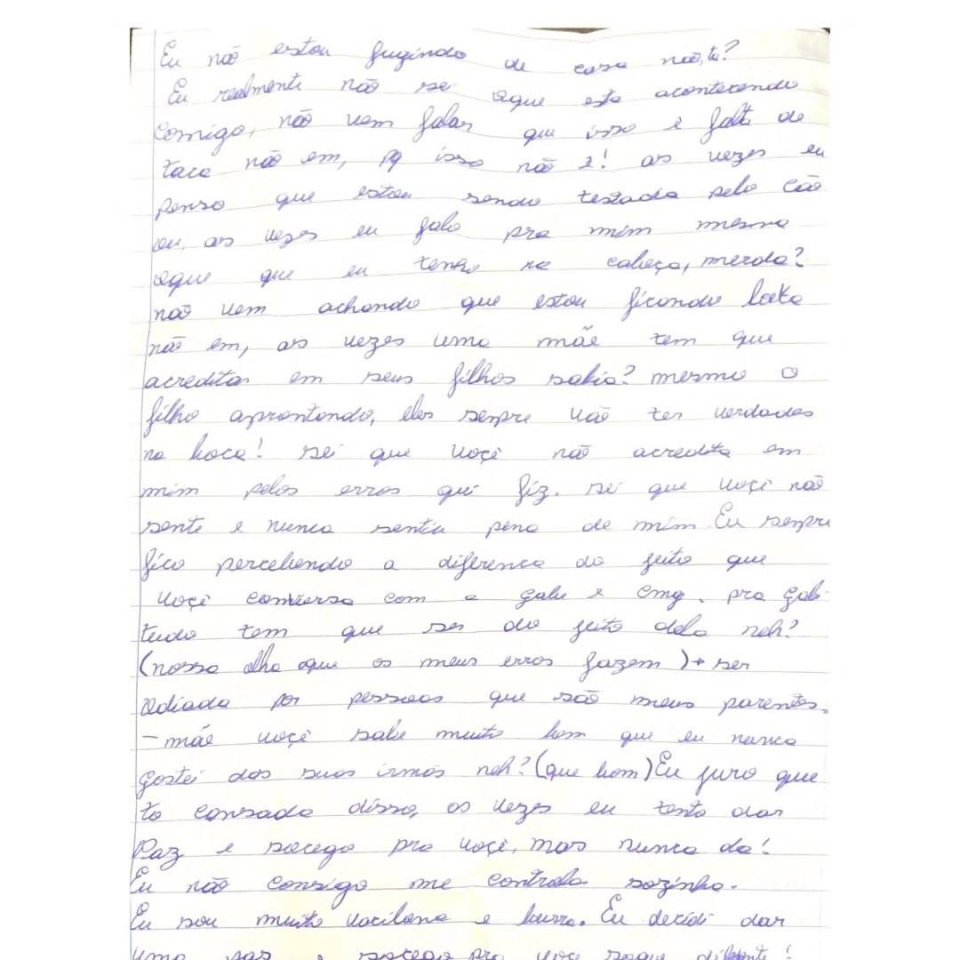 Eu não estou fugindo de casa não,ta?
Eu realmente não se oque esta acontecendo
comigo, não vem falar que isso e falta de
taca não em, pq isso não é! as vezes eu
penso que estou sendo testada pelo cão
ou, as vezes eu falo pra mim mesma
oque que eu tenho na cabeça, merda?
não vem achando que estou ficando louca
não em, as vezes uma mãe tem que
acreditar em seus filhos sabia? mesmo o
filho aprontando, eles senpre vão ter verdades
na boca! sei que voçê não acredita em
mim pelos erros qui fiz. sei que voçê não
sente e nunca sentiu pena de mim Eu senpre
fico percebendo a diferenca do jeito que
voçê comversa com a gabi e cmg. pra gabi
tudo tem que ser do jeito dela neh?
(nossa olha oque os meus erros fazem)+ ser
odiada por pessoas que são meus parentes.
- mãe voçê sabe muito bem que eu nunca
gostei das suas irmãs neh? (que bom) Eu juro que
to cansada disso, as vezes eu tento dar
Paz e socego pra voçê, mas nunca da!
Eu não consigo me controla sozinha.
Eu sou muito vacilona e burra. Eu decidi dar
uma paz e socego pra voçê